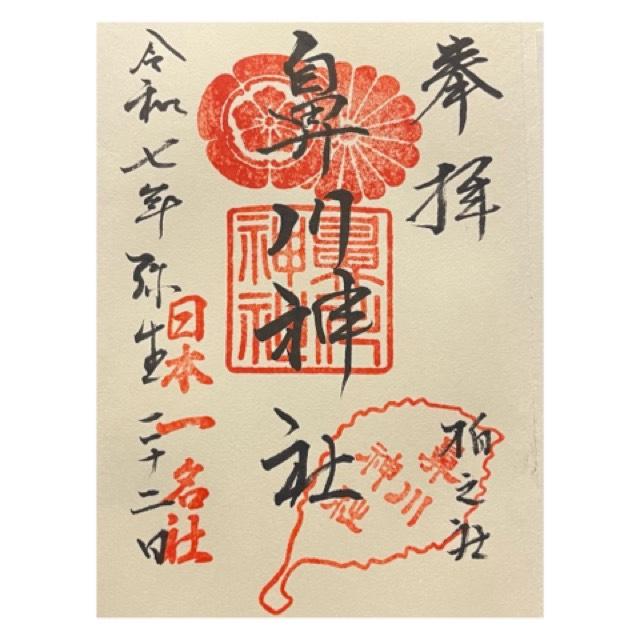 奉拝
柏之社
鼻川神社
鼻川神社
鼻川神社
日本一名社
令和七年弥生二十二日